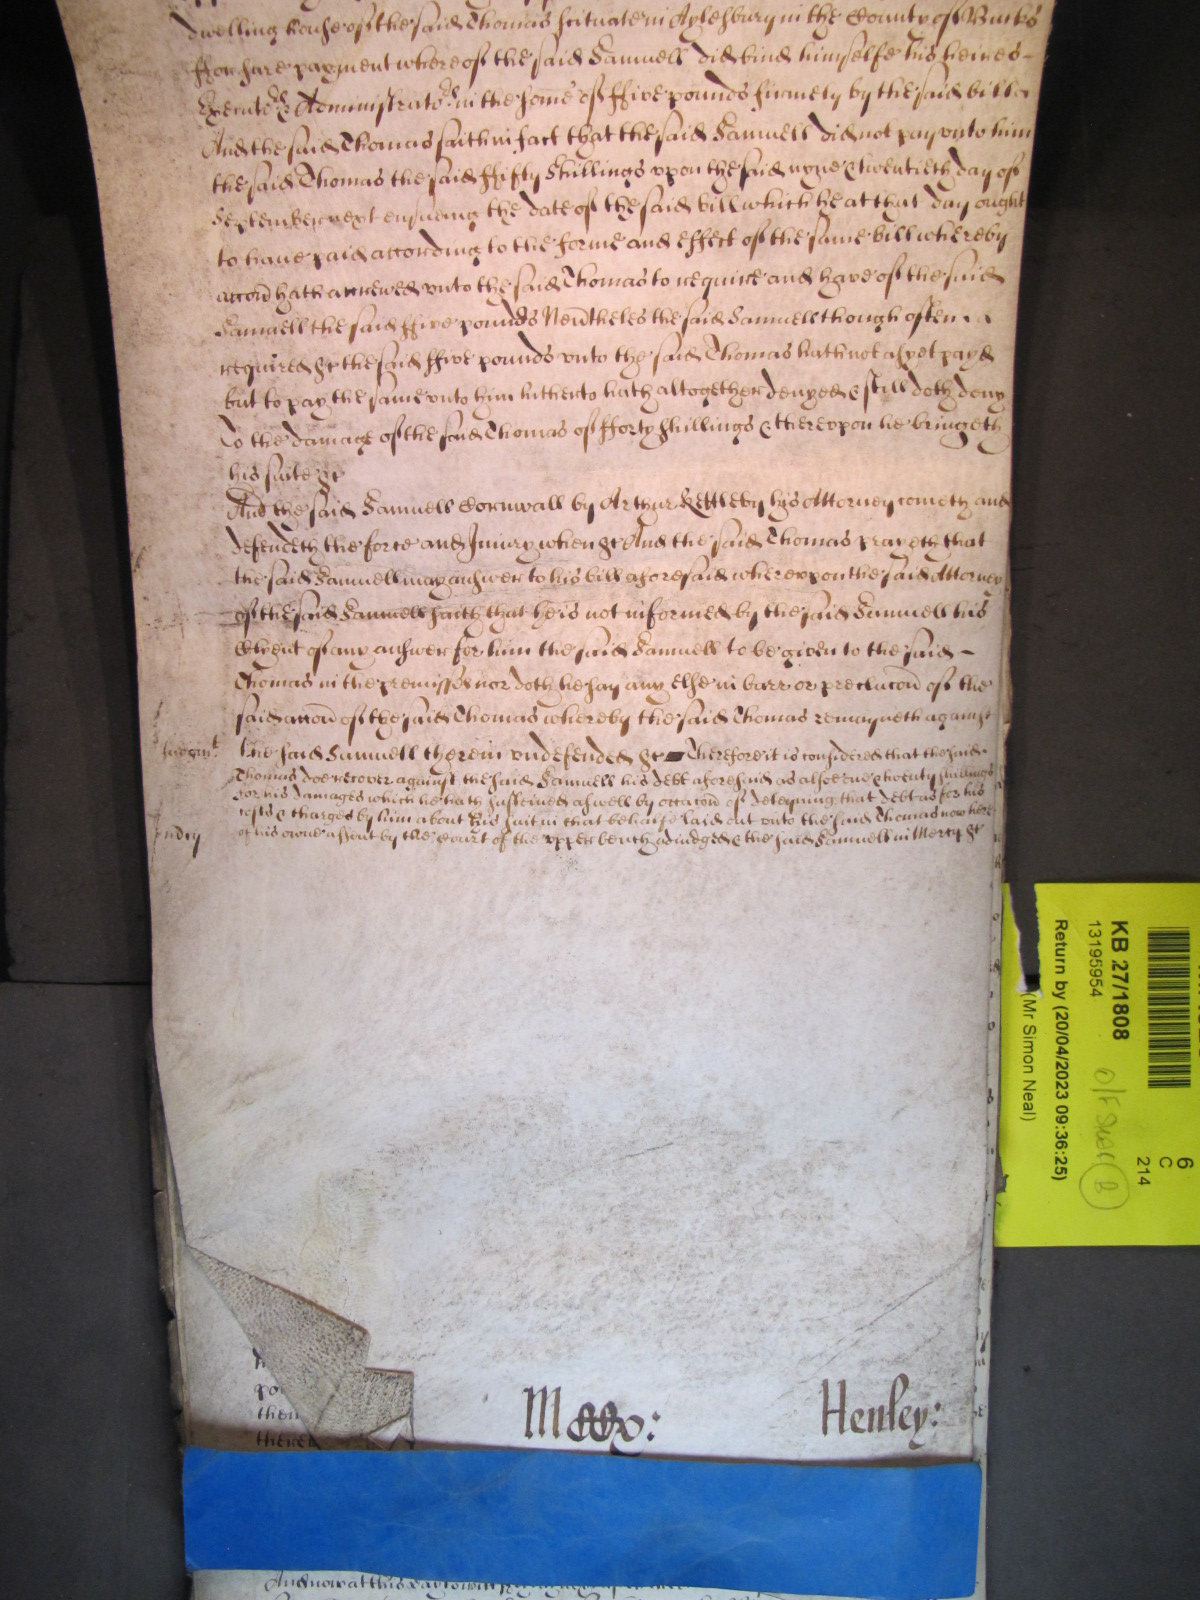 dwelling house of the said Thomas scituate in Aylesbury in the County of Bucks
ffor sure payment whereof the said Samuell did bind himselfe his heires
Executors & Administrators in the some of ffive pounds firmely by the said bill
And the said Thomas saith in fact that the said Samuell did not pay vnto him
the said Thomas the said ffifty Shillings vpon the said nyne & twentieth day of
September next ensueing the date of the said bill which he at that day ought
to haue paid according to the forme and effect of the same bill whereby
accon hath accrewed vnto the said Thomas to require and have of the said
Samuell the said ffive pounds Neutheles the said Samuell though often
required &c the said ffive pounds vnto the said Thomas hath not as yet payd
but to pay the same vnto him hitherto hath altogether denyed & still doth deny
To the damage of the said Thomas of fforty shillings & therevpon he bringeth
his suite &c
And the said Samuell Cornwall by Arthur Kettleby his Attorney cometh and
defendeth the force and Iniury when &c And the said Thomas prayeth that
the said Samuell may answer to his bill aforesaid wherevpon the said Attorney
of the said Samuell saith that he is not informed by the said Samuell his
Clyent of any answer for him the said Samuell to be given to the said
Thomas in the premisses nor doth he say any else in barr or preclucon of the
said accon of the said Thomas whereby the said Thomas remayneth against
Iudgmt
the said Samuell therein vndefended &c Therefore it is considered that the said
Thomas doe recover against the said Samuell his debt aforesaid as alsoe one & twenty shillings
for his damages which he hath susteined aswell by occacon of deteyning that debt as for his
costs & charges by him about his suit in that behalfe laid out vnto the said Thomas now here
of his owne assent by the Court of the vpper bench adiudged & the said Samuell in Mercy &c
mcy
Henley:
KB 27/1808
13195954
Return by (20/04/2023 09:36:25)
(Mr Simon Neal)
6
C
214